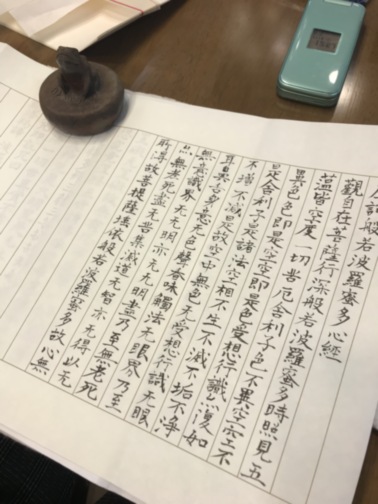 訶般若波羅蜜多心經
觀自在菩薩行深般若波羅蜜多時照見五
蘊皆空度一切苦厄舍利子色不異空空不
異色色即是空空即是色受想行識亦復如
是舍利子是諸法空相不生不滅不垢不淨
不増不減是故空中無色无受想行識无眼
耳鼻舌身意无色聲香味觸法无眼界乃至
無意識界无无明亦无无明盡乃至無老死
亦無老死盡无苦集滅道无智亦无得以无
所得故菩提薩埵依般若波羅蜜多故心無